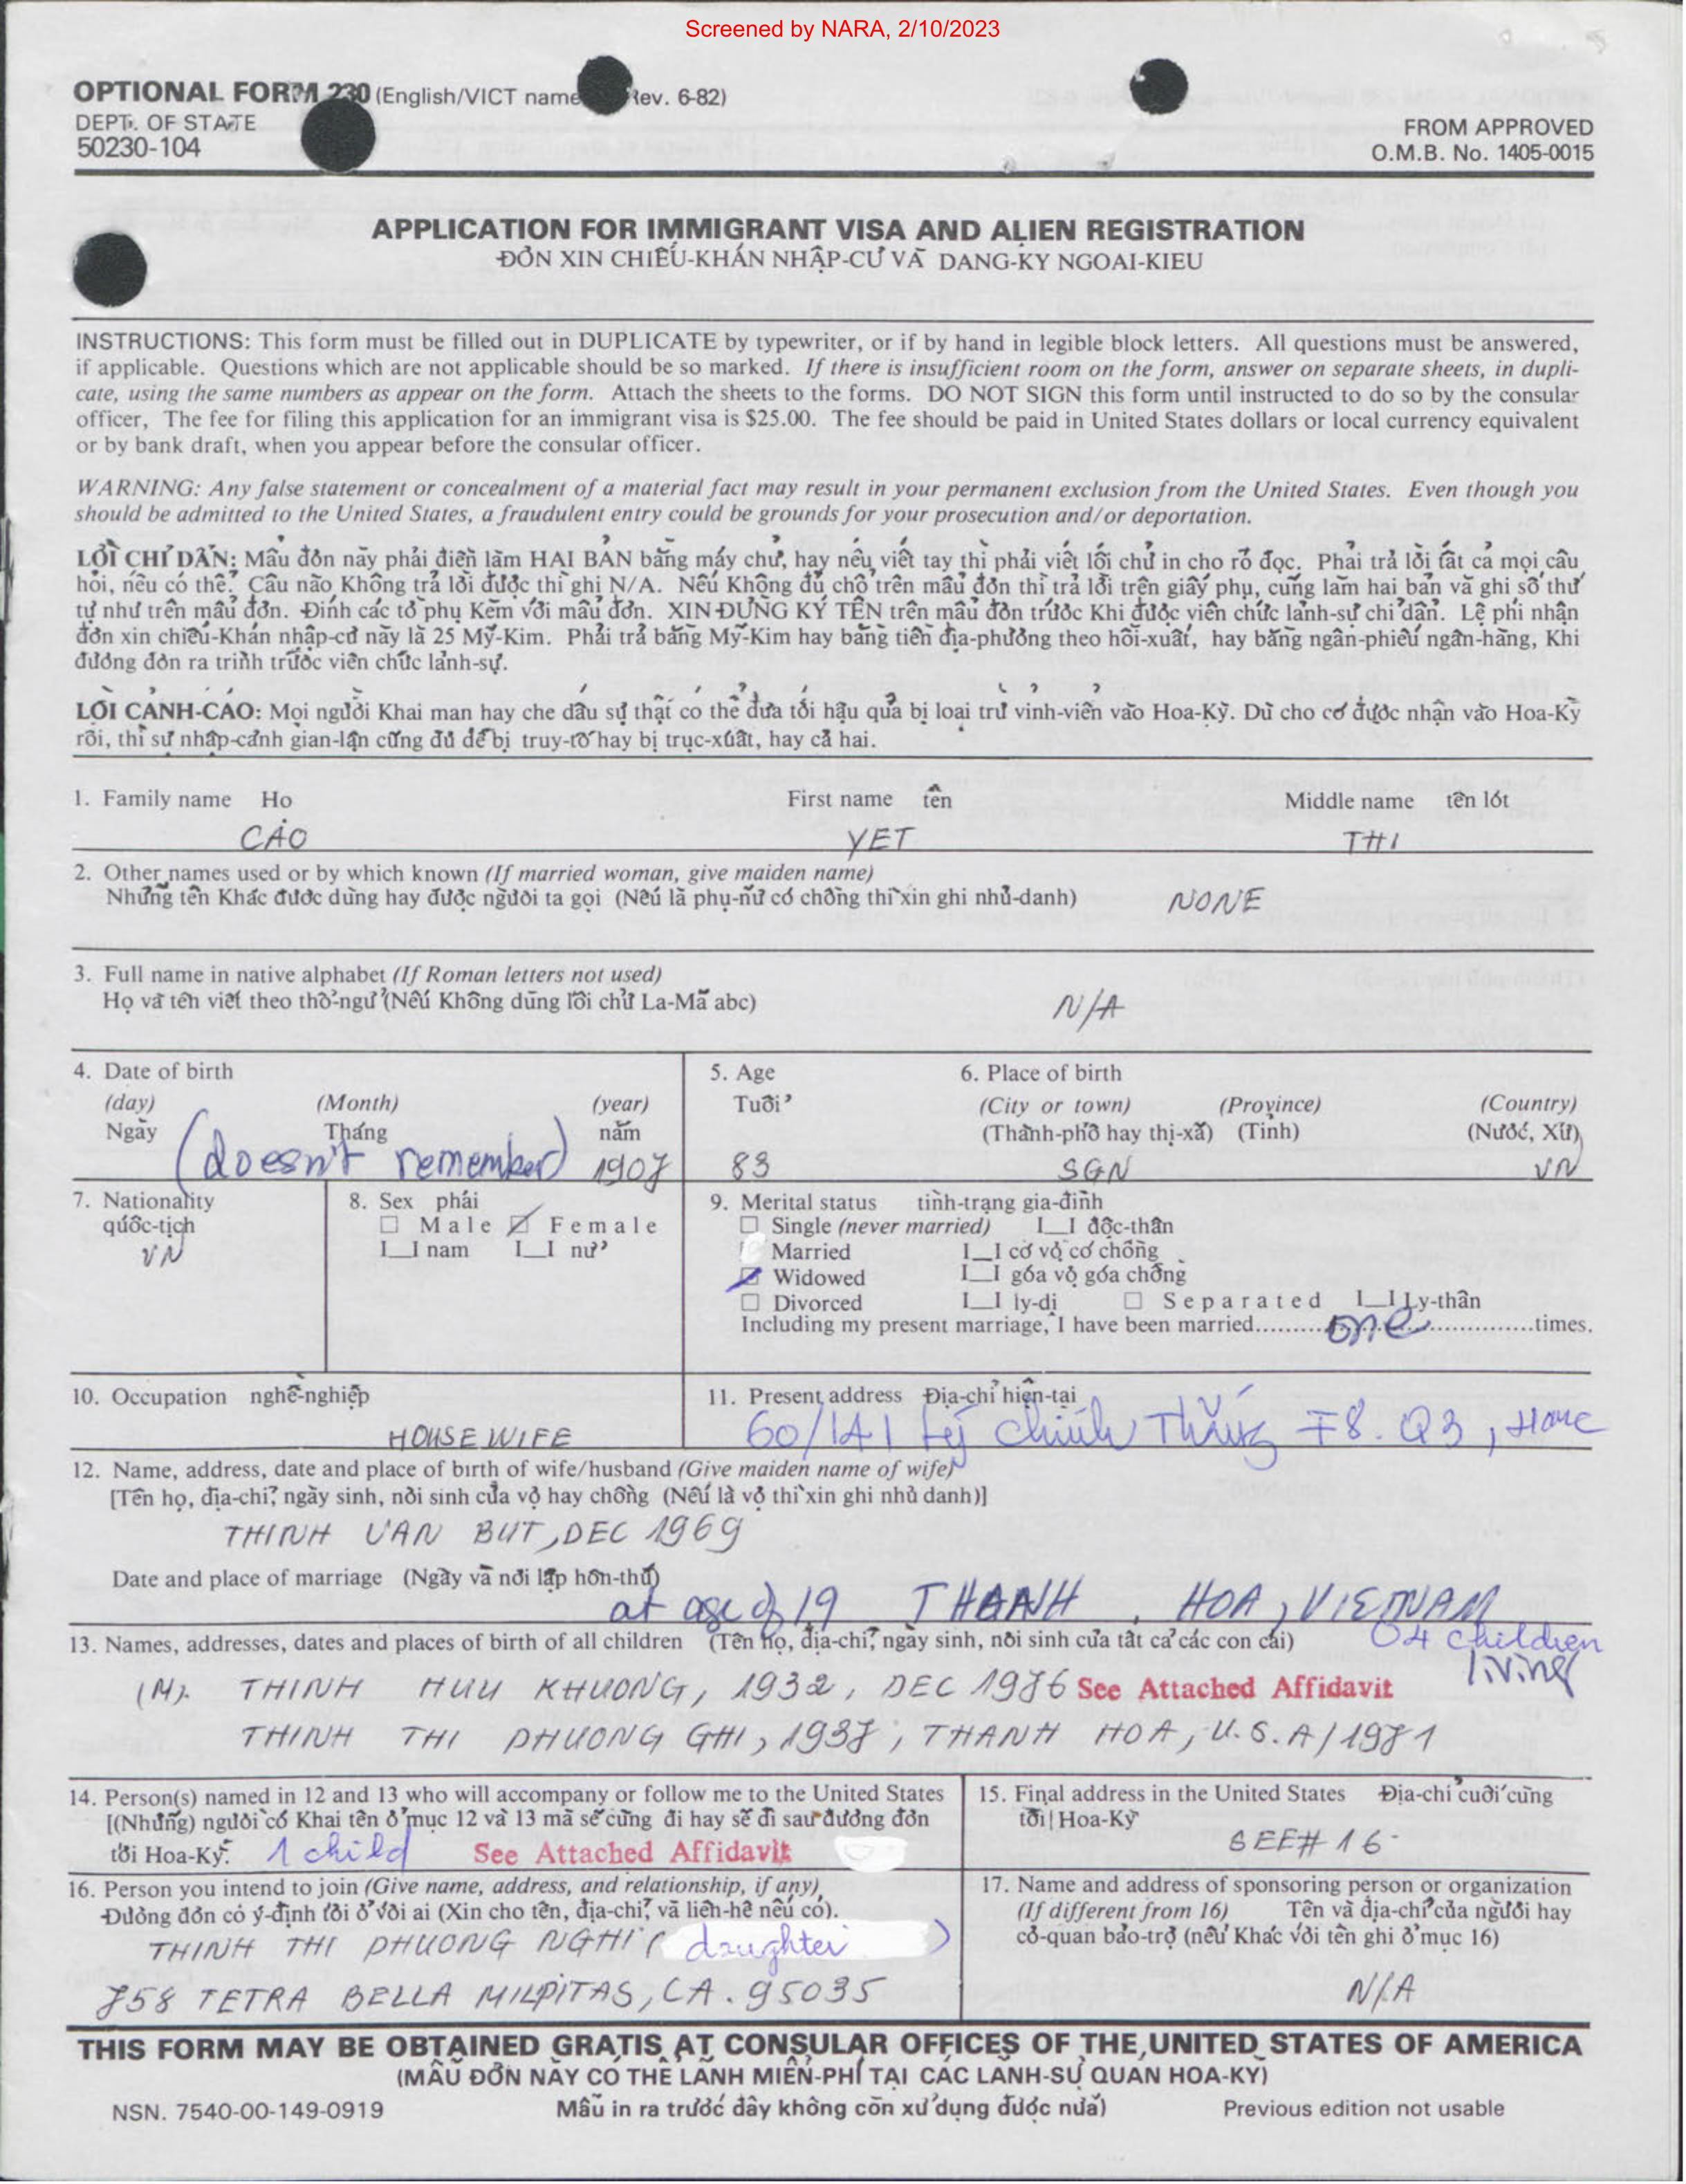 Screened by NARA, 2/10/2023
OPTIONAL FORM 230 (English/VICT name Rev. 6-82)
DEPT. OF STATE
50230-104
FROM APPROVED
O.M.B. No. 1405-0015
APPLICATION FOR IMMIGRANT VISA AND ALIEN REGISTRATION
ĐỎN XIN CHIẾU-KHÁN NHẬP-CƯ VÃ DANG-KY NGOAI-KIEU
INSTRUCTIONS: This form must be filled out in DUPLICATE by typewriter, or if by hand in legible block letters. All questions must be answered,
if applicable. Questions which are not applicable should be so marked. If there is insufficient room on the form, answer on separate sheets, in dupli-
cate, using the same numbers as appear on the form. Attach the sheets to the forms. DO NOT SIGN this form until instructed to do so by the consular
officer, The fee for filing this application for an immigrant visa is $25.00. The fee should be paid in United States dollars or local currency equivalent
or by bank draft, when you appear before the consular officer.
WARNING: Any false statement or concealment of a material fact may result in your permanent exclusion from the United States. Even though you
should be admitted to the United States, a fraudulent entry could be grounds for your prosecution and/or deportation.
LỜI CHỈ DẪN: Mẫu đỏn nãy phải điền lãm HAI BẢN bằng máy chư, hay nếu viết tay thi phải viết lối chử in cho rỏ đọc. Phải trả lỏi tất cả mọi câu
hỏi, nếu có thể. Câu nào Không trả lỏi được thi ghi N/A. Nếú Không đủ chỗ trên mẫu đỏn thi trả lỏi trên giấy phụ, cũng lãm hai bản vã ghi số thư
tự như trên mẫu đơn. Đinh các tỏ phụ Kẽm với mẫu đơn. XIN ĐỪNG KÝ TÊN trên mẫu đỏn trước Khi được viên chức lảnh-sự chỉ dẫn. Lệ phi nhận
đỏn xin chiếu-Khán nhập-cư nãy lã 25 Mỹ-Kim. Phải trả bằng Mỹ-Kim hay bằng tiền địa-phưỏng theo hối-xuất, hay bằng ngân-phiếu ngân-hãng, Khi
đưỏng đỏn ra trinh trước viên chức lảnh-sự.
LỜI CẢNH-CÁO: Mọi ngưỏi Khai man hay che dấu sự thật có thể đưa tới hậu quả bị loại trừ vinh-viển vão Hoa-Kỳ. Dù cho cơ được nhận vão Hoa-Kỳ
rồi, thi sự nhập-cảnh gian-lận cũng đủ để bị truy-tố hay bị trục-xuất, hay cả hai.
1. Family name Họ First name tên Middle name tên lót
CAO YET THI
2. Other names used or by which known (If married woman, give maiden name)
Những tên Khác được dùng hay được ngưỏi ta gọi (Nếú lã phụ-nữ có chồng thi xin ghi nhủ-danh) NONE
3. Full name in native alphabet (If Roman letters not used)
Họ vã tên viết theo thổ-ngư (Nếú Không dũng lối chử La-Mã abc) N/A
4. Date of birth 5. Age 6. Place of birth
(day) (Month) (year) Tuổi (City or town) (Province) (Country)
Ngãy Tháng năm (Thành-phố hay thị-xã) (Tỉnh) (Nước, Xứ)
(doesn't remember) 1907 83 SGN VN
7. Nationality 8. Sex phái 9. Merital status tình-trạng gia-đình
quốc-tịch ☐ Male ☑ Female ☐ Single (never married) I_I độc-thân
VN I_I nam I_I nữ Married I_I có vợ có chồng
☑ Widowed I_I góa vợ góa chồng
☐ Divorced I_I ly-dị ☐ Separated I_I Ly-thân
Including my present marriage, I have been married.........one.........times.
10. Occupation nghề-nghiệp 11. Present address Địa-chỉ hiện-tại
HOUSEWIFE 60/141 Lý Chính Thắng F8. Q3, HCMC
12. Name, address, date and place of birth of wife/husband (Give maiden name of wife)
[Tên họ, địa-chỉ, ngày sinh, nỏi sinh của vợ hay chồng (Nếú là vợ thi xin ghi nhủ danh)]
THINH VAN BUT, DEC 1969
Date and place of marriage (Ngãy vã nơi lập hôn-thú)
at age of 19 THANH HOA, VIETNAM
13. Names, addresses, dates and places of birth of all children (Tên họ, địa-chỉ, ngày sinh, nỏi sinh của tất cả các con cái) 04 children
living
(M). THINH HUU KHUONG, 1932, DEC 1976 See Attached Affidavit
THINH THI PHUONG GHI, 1937, THANH HOA, U.S.A/1971
14. Person(s) named in 12 and 13 who will accompany or follow me to the United States
[(Những) ngưỏi có Khai tên ỏ mục 12 và 13 mã sẽ cùng đi hay sẽ đi sau đưỏng đỏn
tỏi Hoa-Kỳ. 1 child See Attached Affidavit
15. Final address in the United States Địa-chỉ cuối cùng
tỏi Hoa-Kỳ
SEE# 16
16. Person you intend to join (Give name, address, and relationship, if any)
Đưỏng đơn có ý-định tỏi ỏ với ai (Xin cho tên, địa-chỉ, vã liên-hệ nếu có).
THINH THI PHUONG NGHI (daughter)
758 TETRA BELLA MILPITAS, CA. 95035
17. Name and address of sponsoring person or organization
(If different from 16) Tên và địa-chỉ của ngưỏi hay
cỏ-quan bảo-trợ (nếu Khác với tên ghi ỏ mục 16)
N/A
THIS FORM MAY BE OBTAINED GRATIS AT CONSULAR OFFICES OF THE UNITED STATES OF AMERICA
(MẪU ĐỎN NÀY CÓ THỂ LÃNH MIỄN-PHÍ TẠI CÁC LÃNH-SỰ QUAN HOA-KỲ)
NSN. 7540-00-149-0919 Mẫu in ra trước đây không cõn xử dụng được nữa) Previous edition not usable